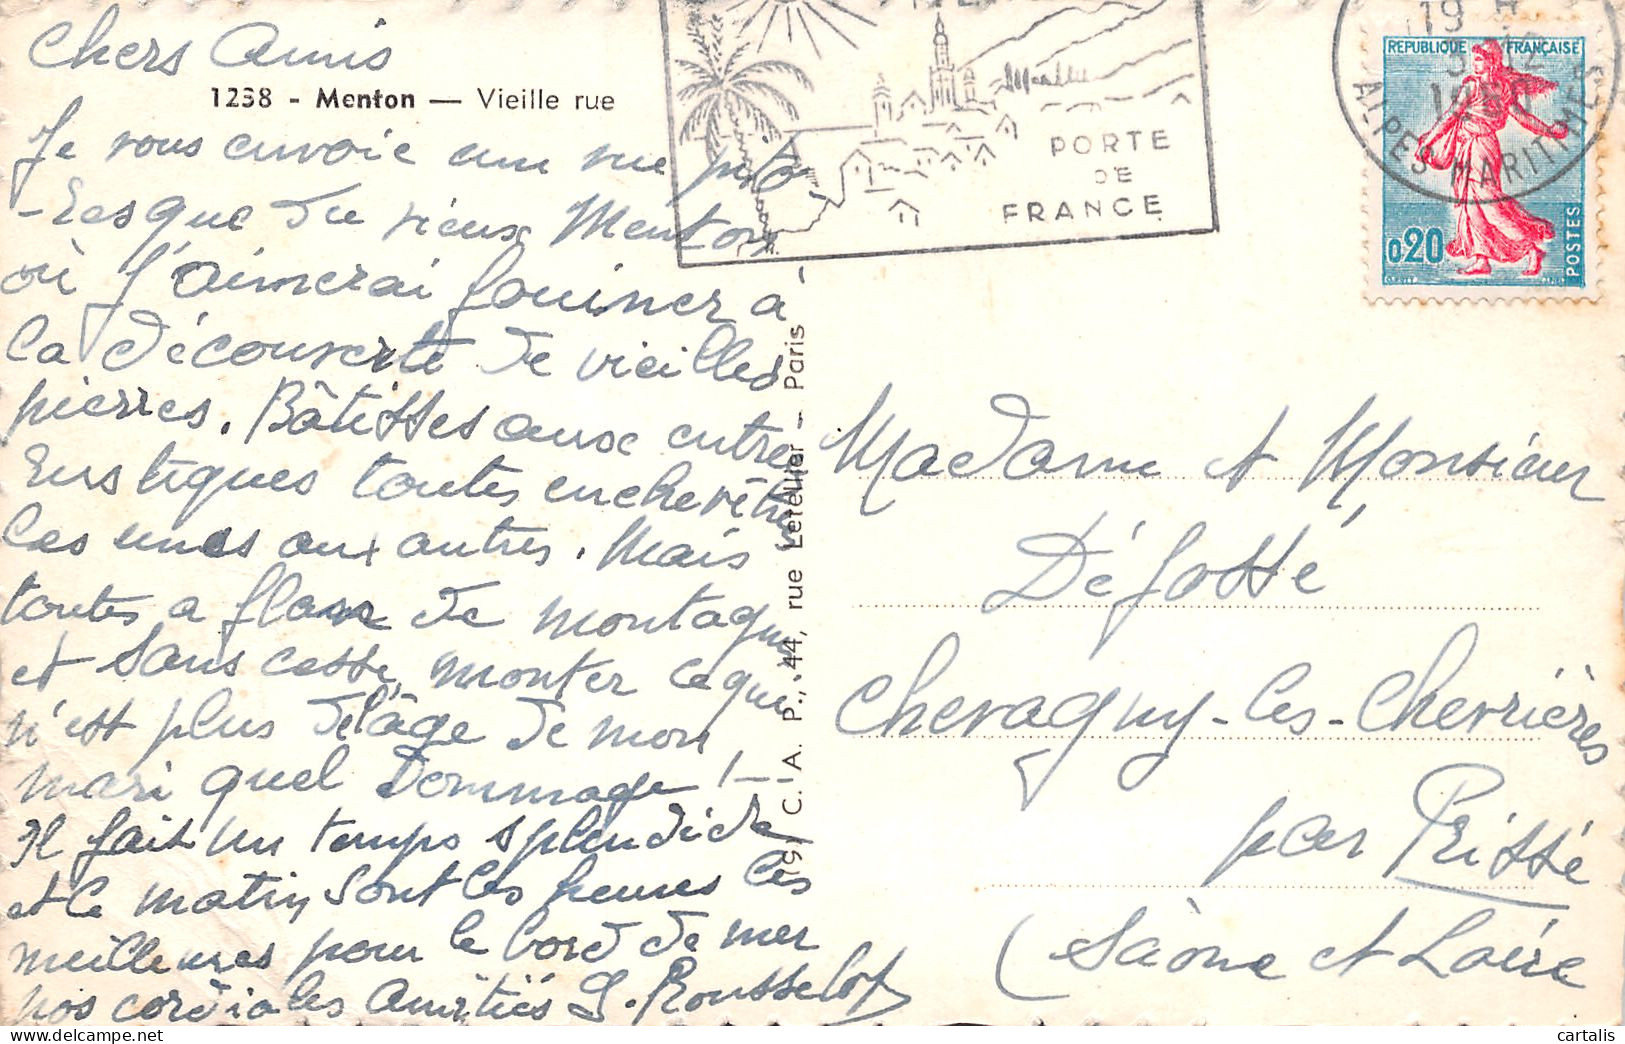 Chers Amis
1238 - Menton — Vieille rue
Je vous envoie une vue pito-
-resque du vieux Menton
où j'aimerai fouiner à
la découverte de vieilles
pierres. Bâtisses aux entre
rustiques toutes enchevêtré
les unes aux autres. Mais
toutes a flanc de montagne
et sans cesse monter ce que
n'est plus de l'âge de mon
mari quel dommage !—
Il fait un temps splendide
et le matin sont les heures les
meilleures pour le bord de mer
nos cordiales Amitiés G. Rousselot
PORTE
DE
FRANCE
19 H
ALPES MARITIMES
REPUBLIQUE FRANÇAISE
0,20
POSTES
C. I. A. P., 44, rue Letellier — Paris
Madame et Monsieur
Défossé
Chevagny-les-Chevrières
par Prissé
(Saône et Loire
cartalis